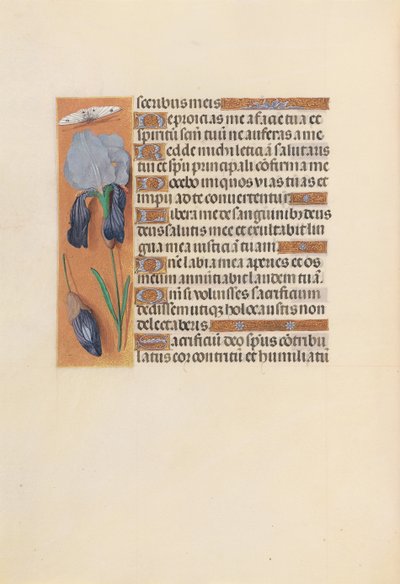 sceribus meis
Ne proicias me a facie tua et
spiritū scm̄ tuū ne auferas a me
Redde michi leticiā salutaris
tui et spū principali cōfirma me
Docebo iniquos vias tuas et
impij ad te convertentur
Libera me de sanguinibꝫ deus
deus salutis mee et exultabit lin
gua mea iusticiā tuam
Dn̄e labia mea aperies et os
meum annūtiabit laudem tuā
Qm̄ si voluisses sacrificium
dedissem utiqꝫ holocaustis non
delectaberis
Sacrificiū deo spūs cōtribu
latus cor contritū et humiliatū